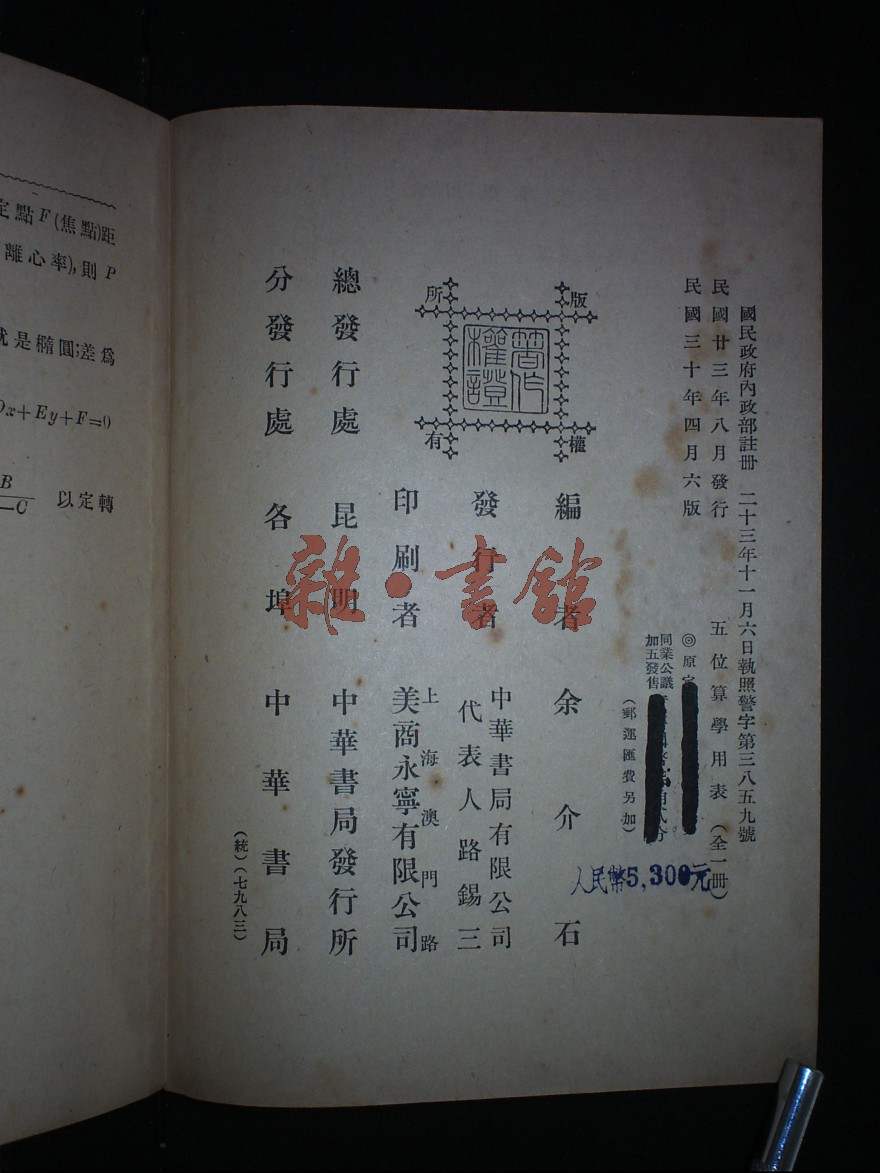 國民政府內政部註冊 二十三年十一月六日執照警字第三八五九號
民國廿三年八月發行
民國三十年四月六版
五位算學用表(全一冊)
◎原定
同業公議
加五發售
(郵運匯費另加)
人民幣5,300元
版權所有
著作權證
編者 余介石
發行者 中華書局有限公司
代表人路錫三
印刷者 上海澳門路
美商永寧有限公司
總發行處 昆明 中華書局發行所
分發行處 各埠 中華書局
(統)(七九八三)
雜·書館
定點F(焦點)距
離心率),則P
就是橢圓;差爲
Dx+Ey+F=0
B
—C 以定轉